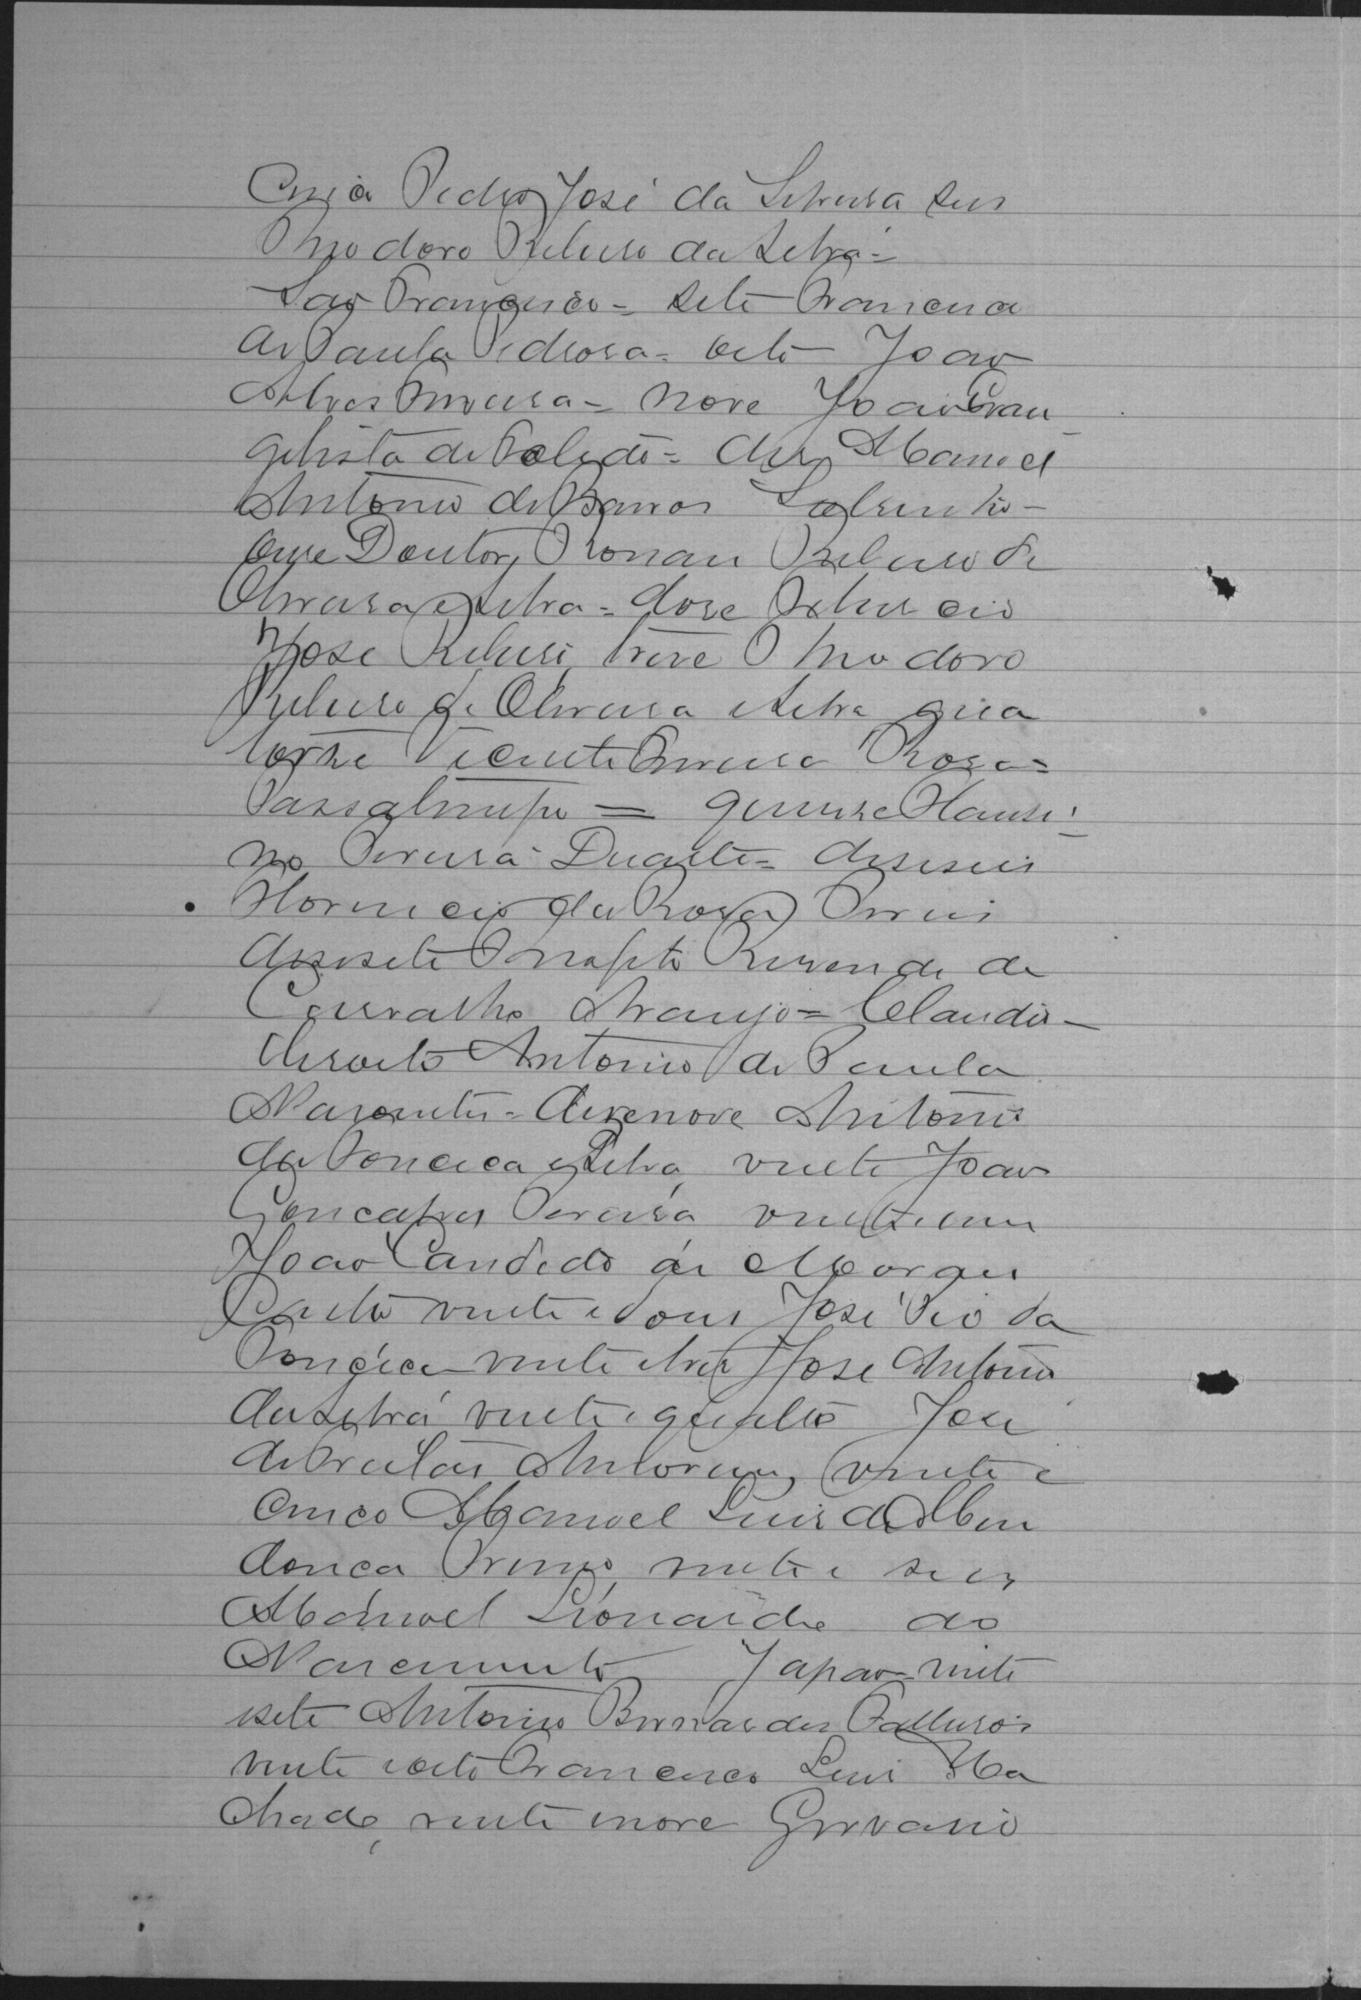 Pedro José da Silveira seis
Theodoro Ribeiro da Silva =
São Francisco = sete Francisco
de Paula Pedrosa = oito João
Alves Ferreira = nove João Evan
gelista de Toledo = dez Manoel
Antonio de Barros
onze Doutor, Ronan Ribeiro de
Oliveira e Silva = doze
José Ribeiro, treze Theodoro
Ribeiro de Oliveira e Silva qua
torze Vicente Ferreira Rosa =
Passatempo = quinze Flausi
no Pereira Duarte = deseseis
Florencio da Rosa
desesete Resende de
Carvalho Araujo = Claudio -
desoito Antonio de Paula
desenove Antonio
da Fonceca e Silva, vinte João
Goncalves Pereira vinte e um
João Candido de
vinte e dous José Pio da
Fonceca vinte e tres José Antonio
da Silva vinte e quatro José
de Freitas vinte e
cinco Manoel Luis de Men
donca Primo, vinte e seis
Manoel Leonardo do
Nascimento Japão vinte
sete Antonio Bernardes
vinte e oito Francisco Luis Ma
chado, vinte e nove Gervasio